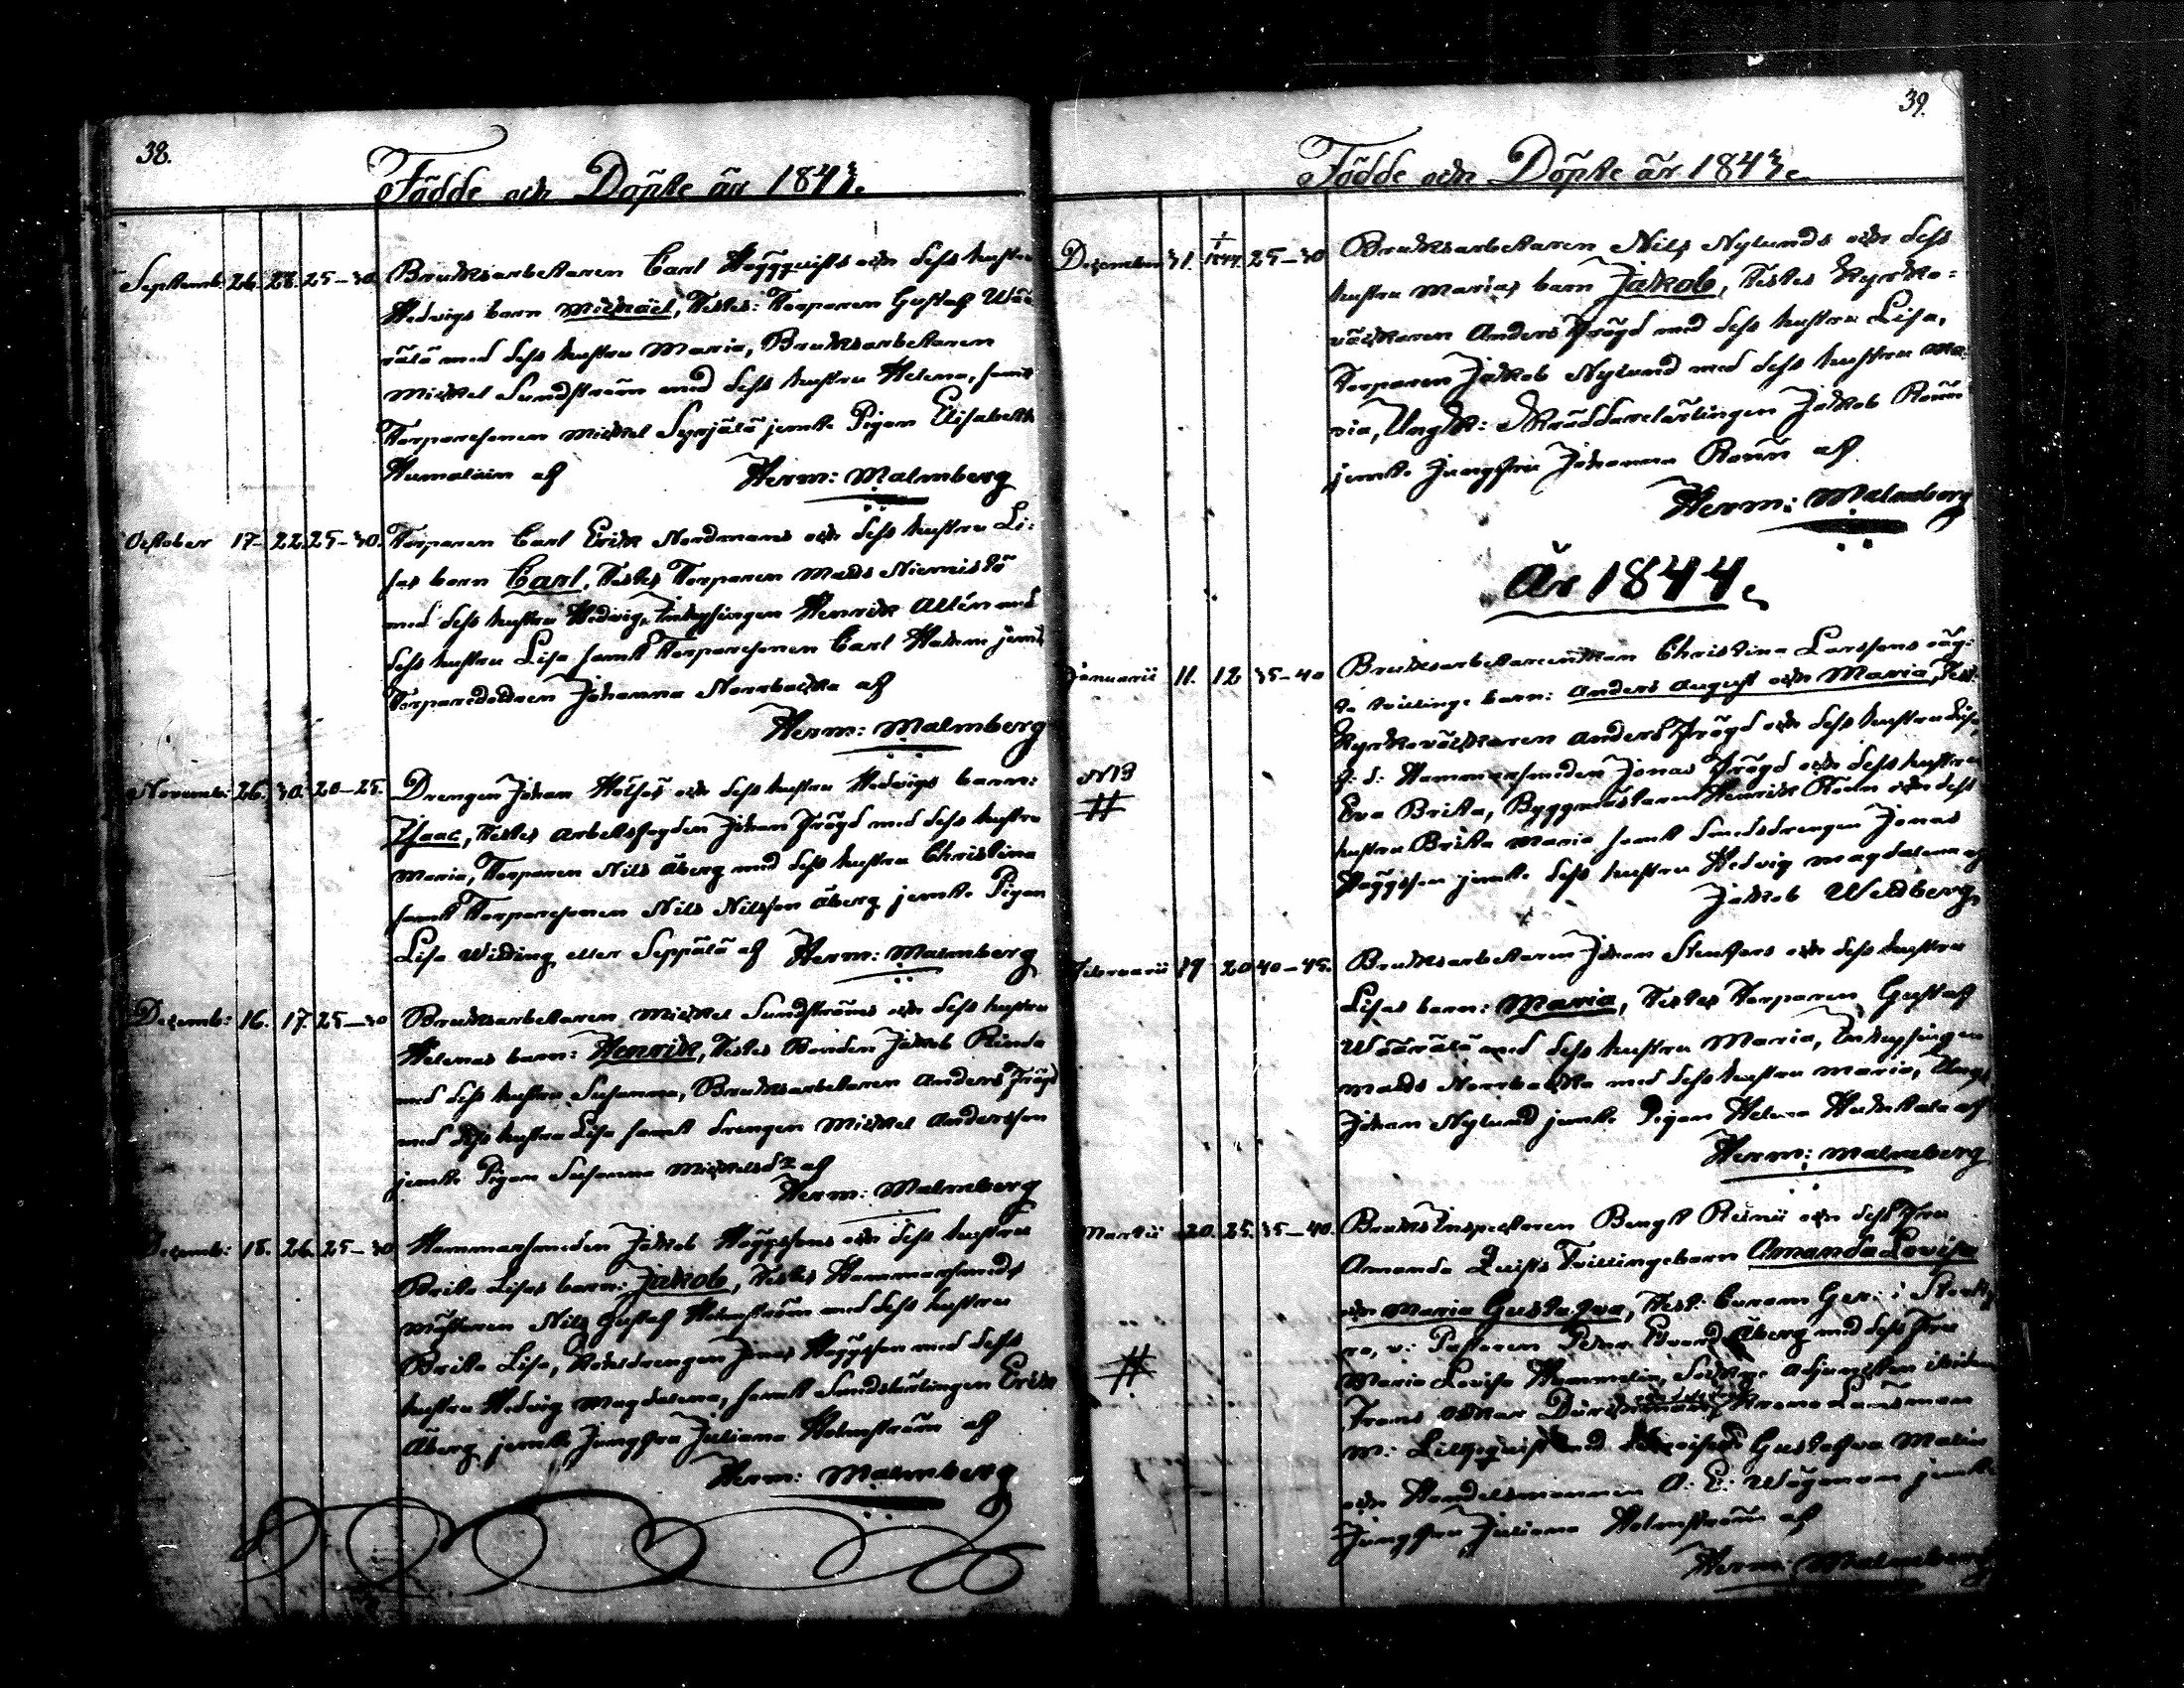 38.
Födde och Döpte år 1843.
Septemb: 26. 28. 25–30. Bruksarbetaren Carl Häggquists och dess hustru
Hedvigs barn Mickäel, Testes: Torparen Gustaf Wää
rälä med dess hustru Maria, Bruksarbetaren
Mickel Sundström med dess hustru Helena, samt
Torparesonen Mickel Syrjälä jemte Pigan Elisabeth
Humaloin af Herm: Malmberg
October 17. 22. 25–30. Torparen Carl Erik Nordmans och dess hustru Li-
sas barn Carl, Testes Torparen Mats Niemistö
med dess hustru Hedvig, Inhysingen Henrik Altén med
dess hustru Lisa samt Torparesonen Carl jemte
Torparedottren Johanna Norrbacka af
Herm: Malmberg
Novemb: 26. 30. 20–25. Drengen Johan och dess hustru Hedvigs barn:
Isaac, Testes Arbetsfogden Johan Frögd med dess hustru
Maria, Torparen Nils Åberg med dess hustru Christina
samt Torparesonen Nils Nilsson Åberg jemte Pigan
Lisa Widing eller Seppälä af Herm: Malmberg
Decemb: 16. 17. 25–30 Bruksarbetaren Mickel Sundströms och dess hustru
Helenas barn: Henrik, Testes Bonden Jakob Rinda
med dess hustru Susanna, Bruksarbetaren Anders Frögd
med dess hustru Lisa samt drengen Mickel Andersson
jemte Pigan Susanna Mickelsdr af
Herm: Malmberg
Decemb: 18. 26. 25–30 Hammarsmeden Jakob Häggssons och dess hustru
Brita Lisas barn: Jakob, Testes Hammarsmeds
mästaren Nils Gustaf Holmström med dess hustru
Brita Lisa, Jonas Häggsson med dess
hustru Hedvig Magdalena, samt Smedslärlingen Erik
Åberg jemte Jungfru Juliana Holmström af
Herm: Malmberg
39.
Födde och Döpte år 1843.
December 31. 1/1844. 25–30 Bruksarbetaren Nils Nylunds och dess
hustru Marias barn Jakob, Testes Kyrko-
väcktaren Anders Frögd med dess hustru Lisa,
Torparen Jakob Nylund med dess hustru Ma-
ria, Ungk: Skräddarelärlingen Jakob Rönn
jemte Jungfru Johanna Rönn af
Herm: Malmberg
År 1844.
Januarii 11. 12 35–40 Bruksarbetareenkan Christina Larssons oäg-
ta tvillinge barn: Anders August och Maria, Test:
Kyrkoväcktaren Anders Frögd och dess hustru Lisa,
NB
#
f: d: Hammarsmeden Jonas Frögd och dess hustru
Eva Brita, Byggmästaren Henrik Rönn och dess
hustru Brita Maria samt Smedsdrengen Jonas
Häggsson jemte dess hustru Hedvig Magdalena af
Jakob Wedberg
Februarii 19 20 40–45. Bruksarbetaren Johan Stenfors och dess hustru
Lisas barn: Maria, Testes Torparen Gustaf
Wäärälä med dess hustru Maria, Inhysingen
Mats Norrbacka med dess hustru Maria, Ungk
Johan Nylund jemte Pigan Helena af
Herm: Malmberg
Martii 20. 25. 35–40. Bruks Inspectoren Bengt och dess Fru
Amanda Quists Tvillingebarn Amanda Lovisa
och Maria Gustafva, Test: Ger: i
ra, v: Pastoren Peter Edvard Åberg med dess Fru
#
Maria Lovisa Adjuncten
Frans Oskar Krono Länsman
M: Lillqvist med Gustafva Malin
och Handelsmannen A: E: Wägman jemte
Jungfru Juliana Holmström af
Herm: Malmberg